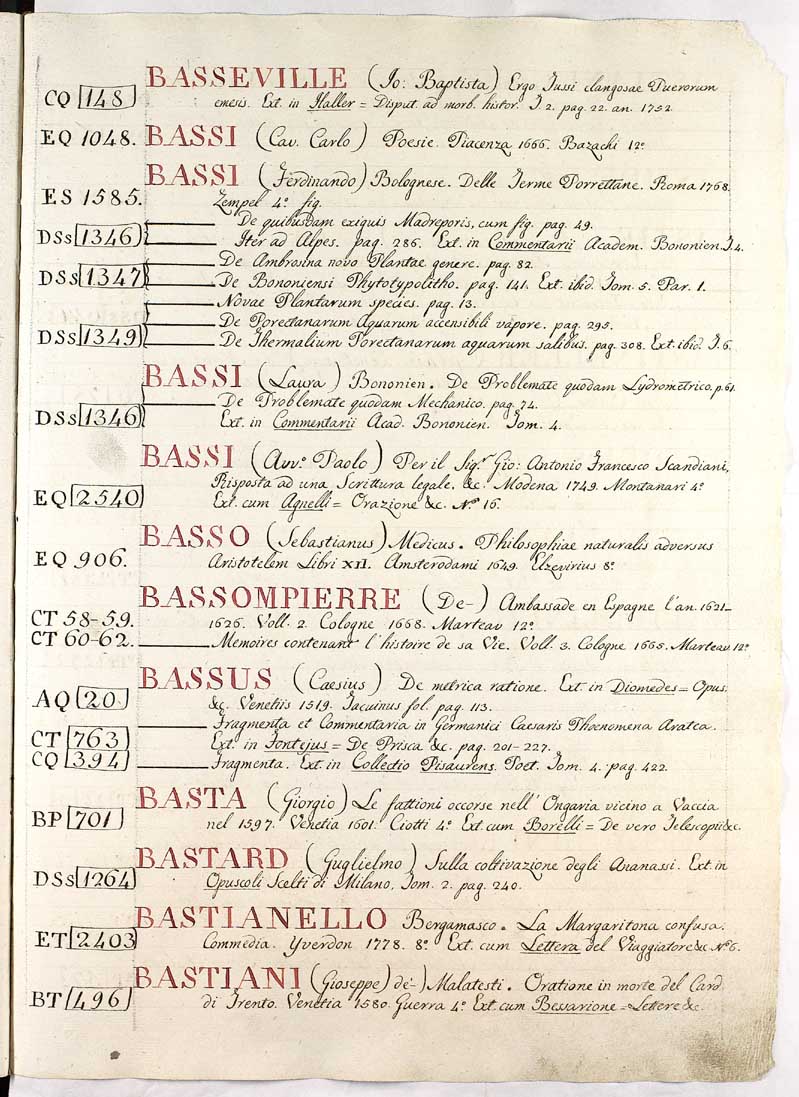 BASSEVILLE (Io: Baptista) Ergo Tussi clangosae Puerorum
CQ 148 emesis. Ext. in Haller = Disput. ad morb. histor. T. 2. pag. 22. an. 1752.
EQ 1048. BASSI (Cav. Carlo) Poesie. Piacenza 1666. Bazachi 12.º
BASSI (Ferdinando) Bolognese. Delle Terme Porrettane. Roma 1768.
ES 1585. Zempel 4.º fig.
De quibusdam exiguis Madreporis, cum fig. pag. 49.
DSs 1346 Iter ad Alpes. pag. 286. Ext. in Commentarii Academ. Bononien. T. 4.
De Ambrosina novo Plantae genere. pag. 82.
DSs 1347 De Bononiensi Phytotypolitho. pag. 141. Ext. ibid. Tom. 5. Par. 1.
Novae Plantarum species. pag. 13.
De Porectanarum Aquarum accensibili vapore. pag. 295.
DSs 1349 De Thermalium Porectanarum aquarum salibus. pag. 308. Ext. ibid. T. 6.
BASSI (Laura) Bononien. De Problemate quodam Hydrometrico. p. 61.
De Problemate quodam Mechanico. pag. 74.
DSs 1346 Ext. in Commentarii Acad. Bononien. Tom. 4.
BASSI (Avv.º Paolo) Per il Sig.r Gio: Antonio Francesco Scandiani,
Risposta ad una Scrittura legale. &c. Modena 1749. Montanari 4.º
EQ 2540 Ext. cum Agnelli = Orazione &c. N.º 16.
BASSO (Sebastianus) Medicus. Philosophiae naturalis adversus
EQ 906. Aristotelem Libri XII. Amsterodami 1649. Elzevirius 8.º
BASSOMPIERRE (De-) Ambassade en Espagne l'an. 1621-
CT 58-59. 1626. Voll. 2. Cologne 1668. Marteau 12.º
CT 60-62. Memoires contenant l'histoire de sa Vie. Voll. 3. Cologne 1665. Marteau 12.º
BASSUS (Caesius) De metrica ratione. Ext. in Diomedes = Opus
AQ 20. &c. Venetiis 1519. Tacuinus fol. pag. 113.
Fragmenta et Commentaria in Germanici Caesaris Phoenomena Aratea.
CT 763 Ext. in Fontejus = De Prisca &c. pag. 201-227.
CQ 394 Fragmenta. Ext. in Collectio Pisaurens. Poet. Tom. 4. pag. 422.
BASTA (Giorgio) Le fattioni occorse nell' Ongaria vicino a Vaccia
BP 701 nel 1597. Venetia 1601. Ciotti 4.º Ext. cum Borelli = De vero Telescopii &c.
BASTARD (Guglielmo) Sulla coltivazione degli Ananassi. Ext. in
DSs 1264 Opuscoli Scelti di Milano, Tom. 2. pag. 240.
BASTIANELLO Bergamasco. La Margaritona confusa.
ET 2403 Commedia. Yverdon 1778. 8.º Ext. cum Lettera del Viaggiatore &c N.º 6.
BASTIANI (Gioseppe) de'-) Malatesti. Oratione in morte del Card.
BT 496 di Trento. Venetia 1580. Guerra 4.º Ext. cum Bessarione = Lettere &c.